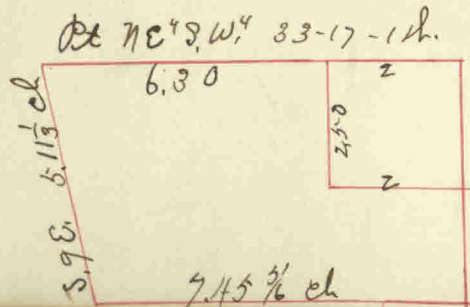 Pt NE⁴ S.W.⁴ 33-17-1 ch.
6.30
2
2.50
2
S.9 E. 5.11 1/3 ch
7.45 5/6 ch